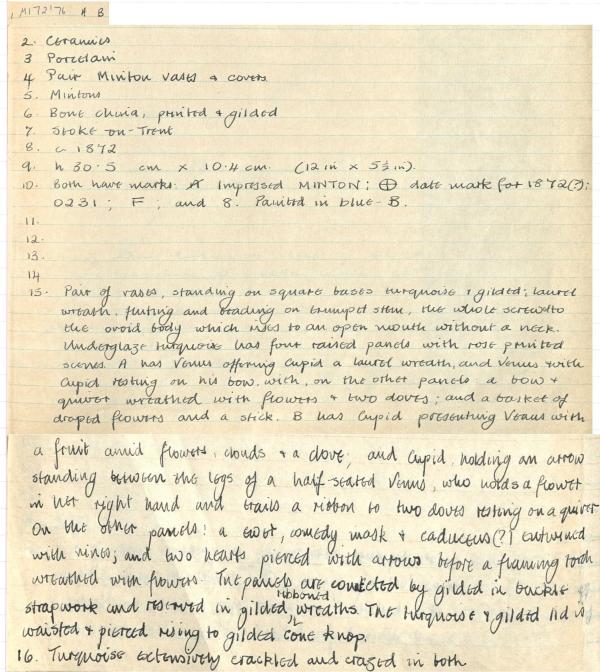 M172!'76 A B
2. Ceramics
3 Porcelain
4 Pair Minton vases & covers
5. Mintons
6. Bone china, printed & gilded
7. Stoke-on-Trent
8. c 1872
9. h 30.5 cm x 10.4 cm. (12 in x 5½ in).
10. Both have marks. A Impressed MINTON; ⊕ date mark for 1872(?);
0231; F; and 8. Painted in blue - B.
11.
12.
13.
14
15. Pair of vases, standing on square bases turquoise & gilded; laurel
wreath, fluting and beading on trumpet stem, the whole screwd to
the ovoid body which rises to an open mouth without a neck.
Underglaze turquoise has four raised panels with rose printed
scenes. A has Venus offering Cupid a laurel wreath, and Venus with
Cupid resting on his bow, with, on the other panels: a bow &
quiver wreathed with flowers & two doves; and a basket of
draped flowers and a stick. B has Cupid presenting Venus with
a fruit amid flowers, clouds & a dove; and Cupid, holding an arrow
standing between the legs of a half-seated Venus, who holds a flower
in her right hand and trails a ribbon to two doves resting on a quiver
On the other panels: a ewer, comedy mask & caduceus(?) entwined
with vines; and two hearts pierced with arrows before a flaming torch
wreathed with flowers. The panels are connected by gilded in buckle &
strapwork and reserved in gilded ribboned wreaths. The turquoise & gilded lid is
waisted & pierced rising to gilded cone knop.
16. Turquoise extensively crackled and crazed in both